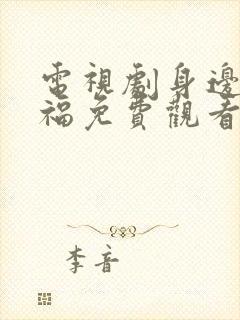 電視劇身邊
福免費觀看
李音